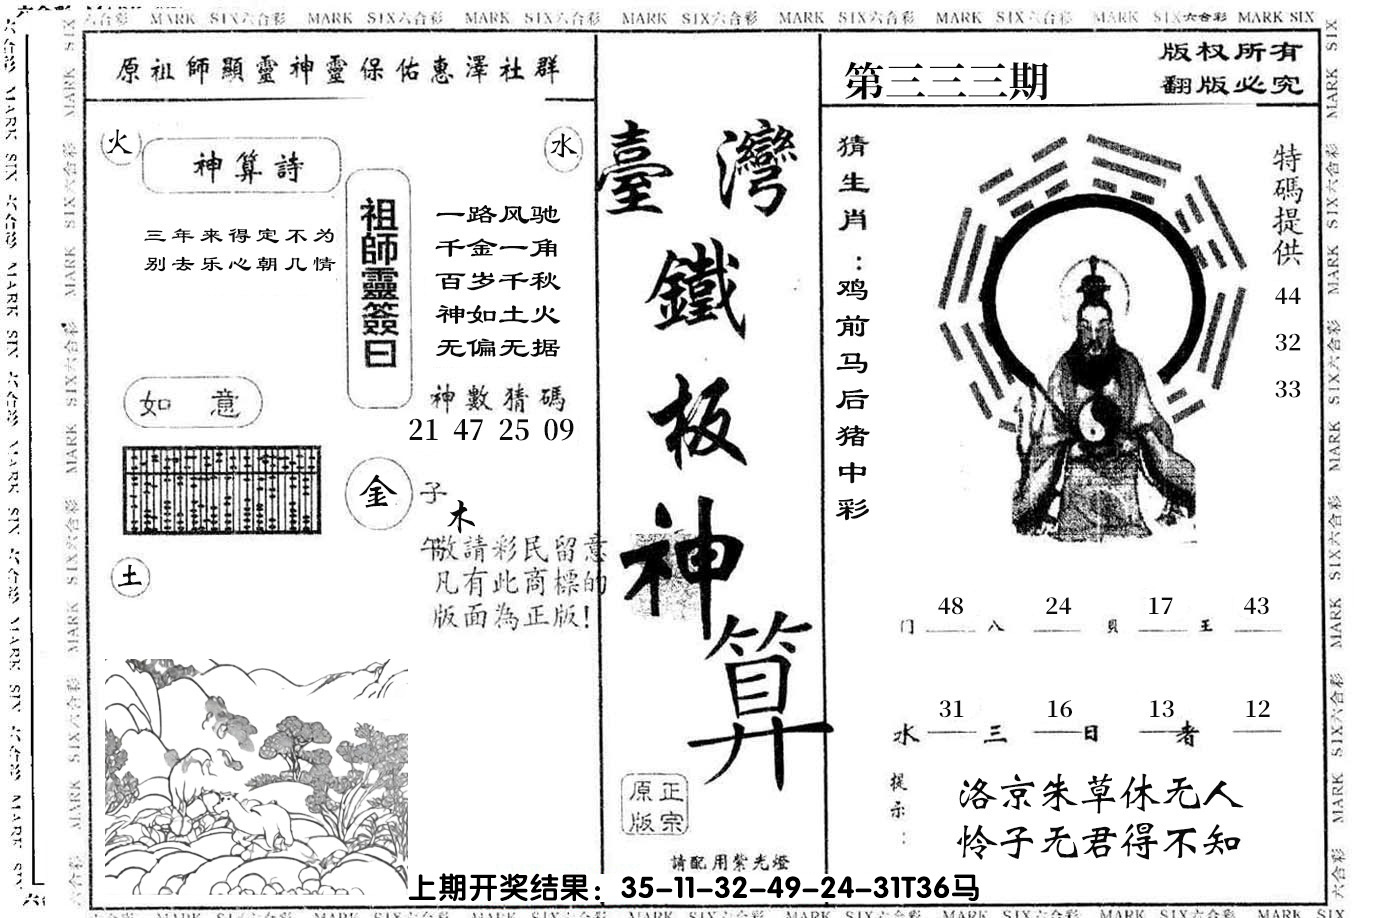 MARK SIX六合彩 MARK SIX六合彩 MARK SIX六合彩 MARK SIX六合彩 MARK SIX六合彩 MARK SIX六合彩 MARK SIX六合彩 MARK SIX
原祖師顯靈神靈保佑惠澤社群
火
神算詩
水
三年来得定不为
别去乐心朝几情
祖師靈簽曰
一路风驰
千金一角
百岁千秋
神如土火
无偏无据
神數猜碼
21 47 25 09
如 意
金
子
木
午
敬請彩民留意
凡有此商標的
版面為正版!
土
臺灣
鐵
板
神
算
正宗
原版
請配用紫光燈
第三三三期
版权所有
翻版必究
猜生肖:鸡前马后猪中彩
特碼提供
44
32
33
48 24 17 43
门 八 貝 王
31 16 13 12
水 三 日 者
提示:
洛京朱草休无人
怜子无君得不知
上期开奖结果：35-11-32-49-24-31T36马